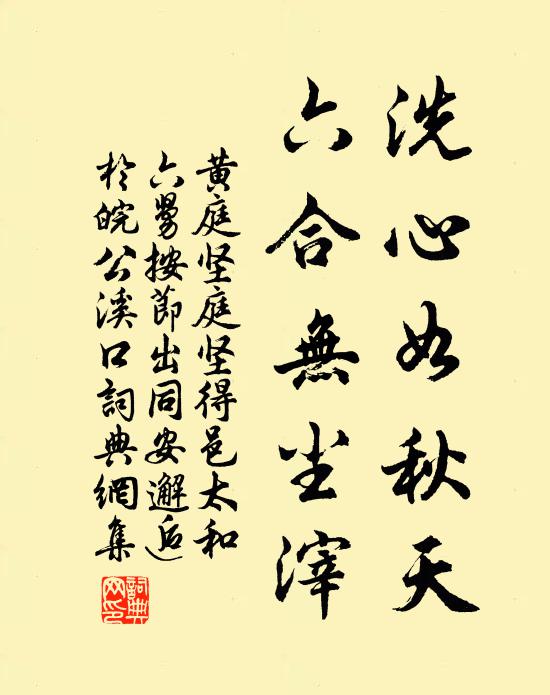 洗心如秋天
六合無尘滓
黄庭坚庭坚得邑太和
六舅按節出同安邂逅
於皖公溪口詞典網集
詞典
网印